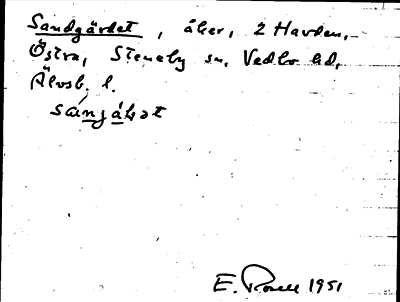 Sandgärdet, åker, 2 Harden,
Östra, Steneby sn, Vedbo hd,
Älvsb. l.
E. 1951